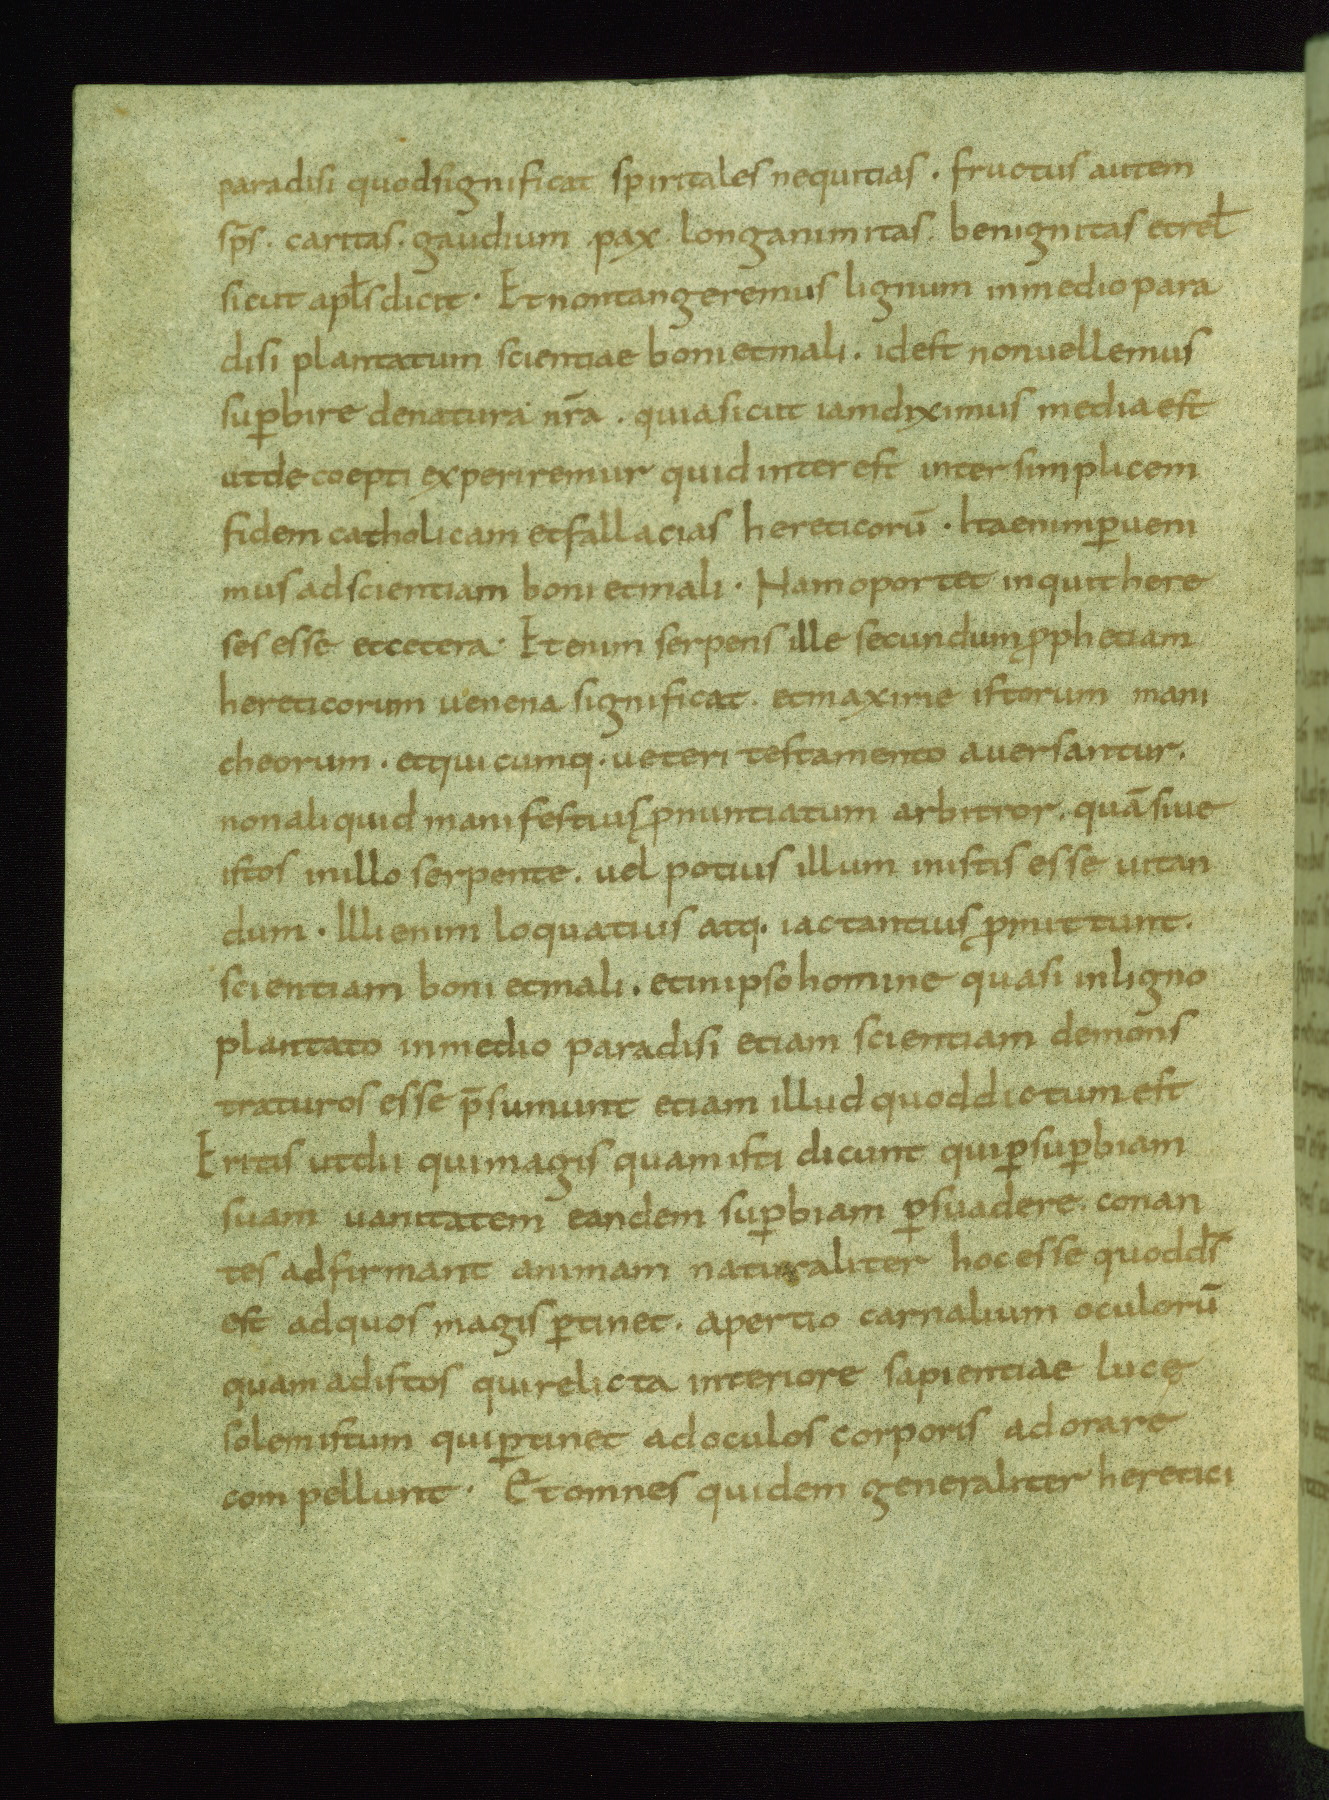 paradisi quod significat spiritales nequitias · fructus autem
sp̄s · caritas · gaudium · pax · longanimitas · benignitas et rel̄
sicut apl̄s dicit · Et non tangeremus lignum in medio para
disi plantatum scientiae boni et mali · id est non uellemus
sup̄bire de natura nr̄a · quia sicut iam diximus media est
ut decoepti experiremur quid interest inter simplicem
fidem catholicam et fallacias hereticorū · Ita enim p̄ueni
mus ad scientiam boni et mali · Nam oportet inquit here
ses esse et cetera · Etenim serpens ille secundum ꝓphetiam
hereticorum uenena significat · et maxime istorum mani
cheorum · et quicumq· ueteri testamento auersantur ·
non aliquid manifestius ꝓnuntiatum arbitror · quā siue
istos in illo serpente · uel potius illum in istis esse uitan
dum · Illi enim loquatius atq· iactantius ꝓmittunt ·
scientiam boni et mali · et in ipso homine quasi in ligno
plantato in medio paradisi etiam scientiam demons
traturos esse p̄sumunt etiam illud quod dictum est
Eritis ut dii qui magis quam isti dicunt qui ꝑ suꝑbiam
suam uanitatem eandem suꝑbiam ꝑsuadere conan
tes adfirmant animam naturaliter hoc esse quod ds̄
est ad quos magis ꝑtinet · apertio carnalium oculorū
quam ad istos qui relicta interiore sapientiae lucę
solem istum qui ꝑtinet ad oculos corporis adorare
compellunt · Et omnes quidem generaliter heretici